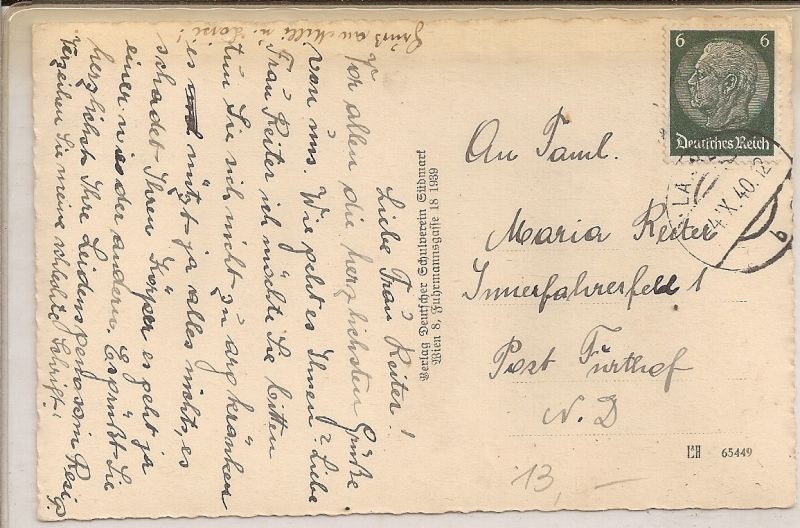 Liebe Frau Reiter!
Vor allen die herzlichsten Grüße
von uns. Wie geht es Ihnen? Liebe
Frau Reiter ich möchte Sie bitten
tun Sie sich nicht so arg kränken
es nützt ja alles nichts, es
schadet Ihren Körper es geht ja
einer wie der andern. Es grüßt Sie
herzlichst Ihre Leidensgenossin Resi P.
Verzeihen Sie meine schlechte Schrift!
Gruß an Milli u.
Verlag Deutscher Schulverein Südmark
Wien 8, Fuhrmannsgasse 18 1939
6 6
Deutsches Reich
4.X.40.12
b
An Faml.
Maria Reiter
Innerfahrerfeld 1
Post Furthof
N.D
65449
13,—